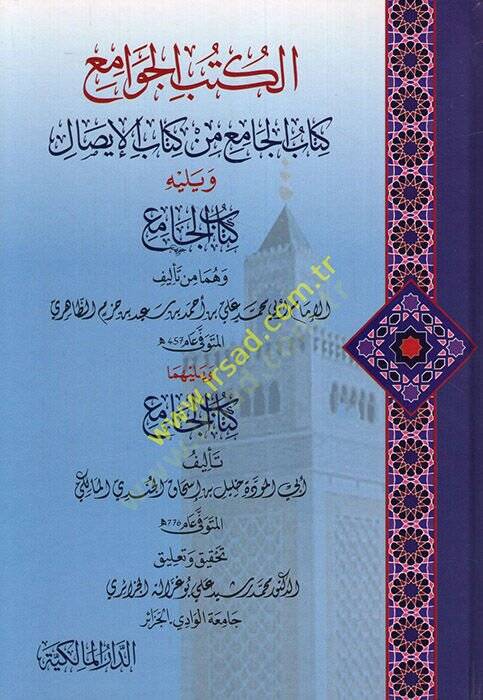 الكُتُبُ الجَوَامِعُ
كِتَابُ الجَامِعِ مِنْ كِتَابِ الإِيصَالِ
وَيَلِيْهِ
كِتَابُ الجَامِعِ
وَهُمَا مِن تَأْلِيفِ
الإمام أبي محمد علي بن أحمد بن سعيد بن حزم الظاهري
المتوفى عام 456هـ
وَيَلِيْهُمَا
كِتَابُ الجَامِعِ
تَأْلِيفُ
أبي المودة خليل بن إسحاق الجندي المالكي
المتوفى عام 776هـ
تحقيق وتعليق
الدكتور محمد رشيد علي بوغزالة الجزائري
جامعة الوادي - الجزائر
الدَّارُ المَالِكِيَّة
www.irsad.com.tr